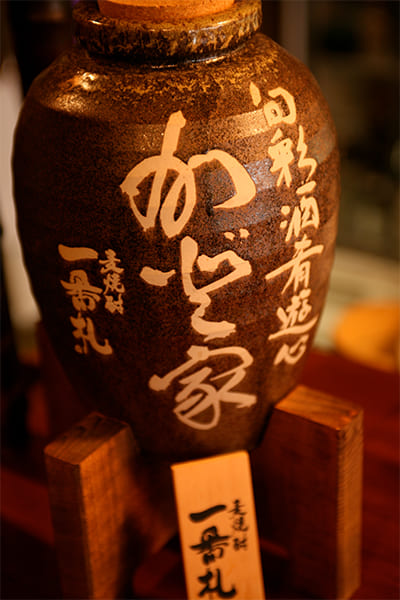 旬彩酒肴遊心
加ど家
麦焼酎
一番札
麦焼酎
一番札